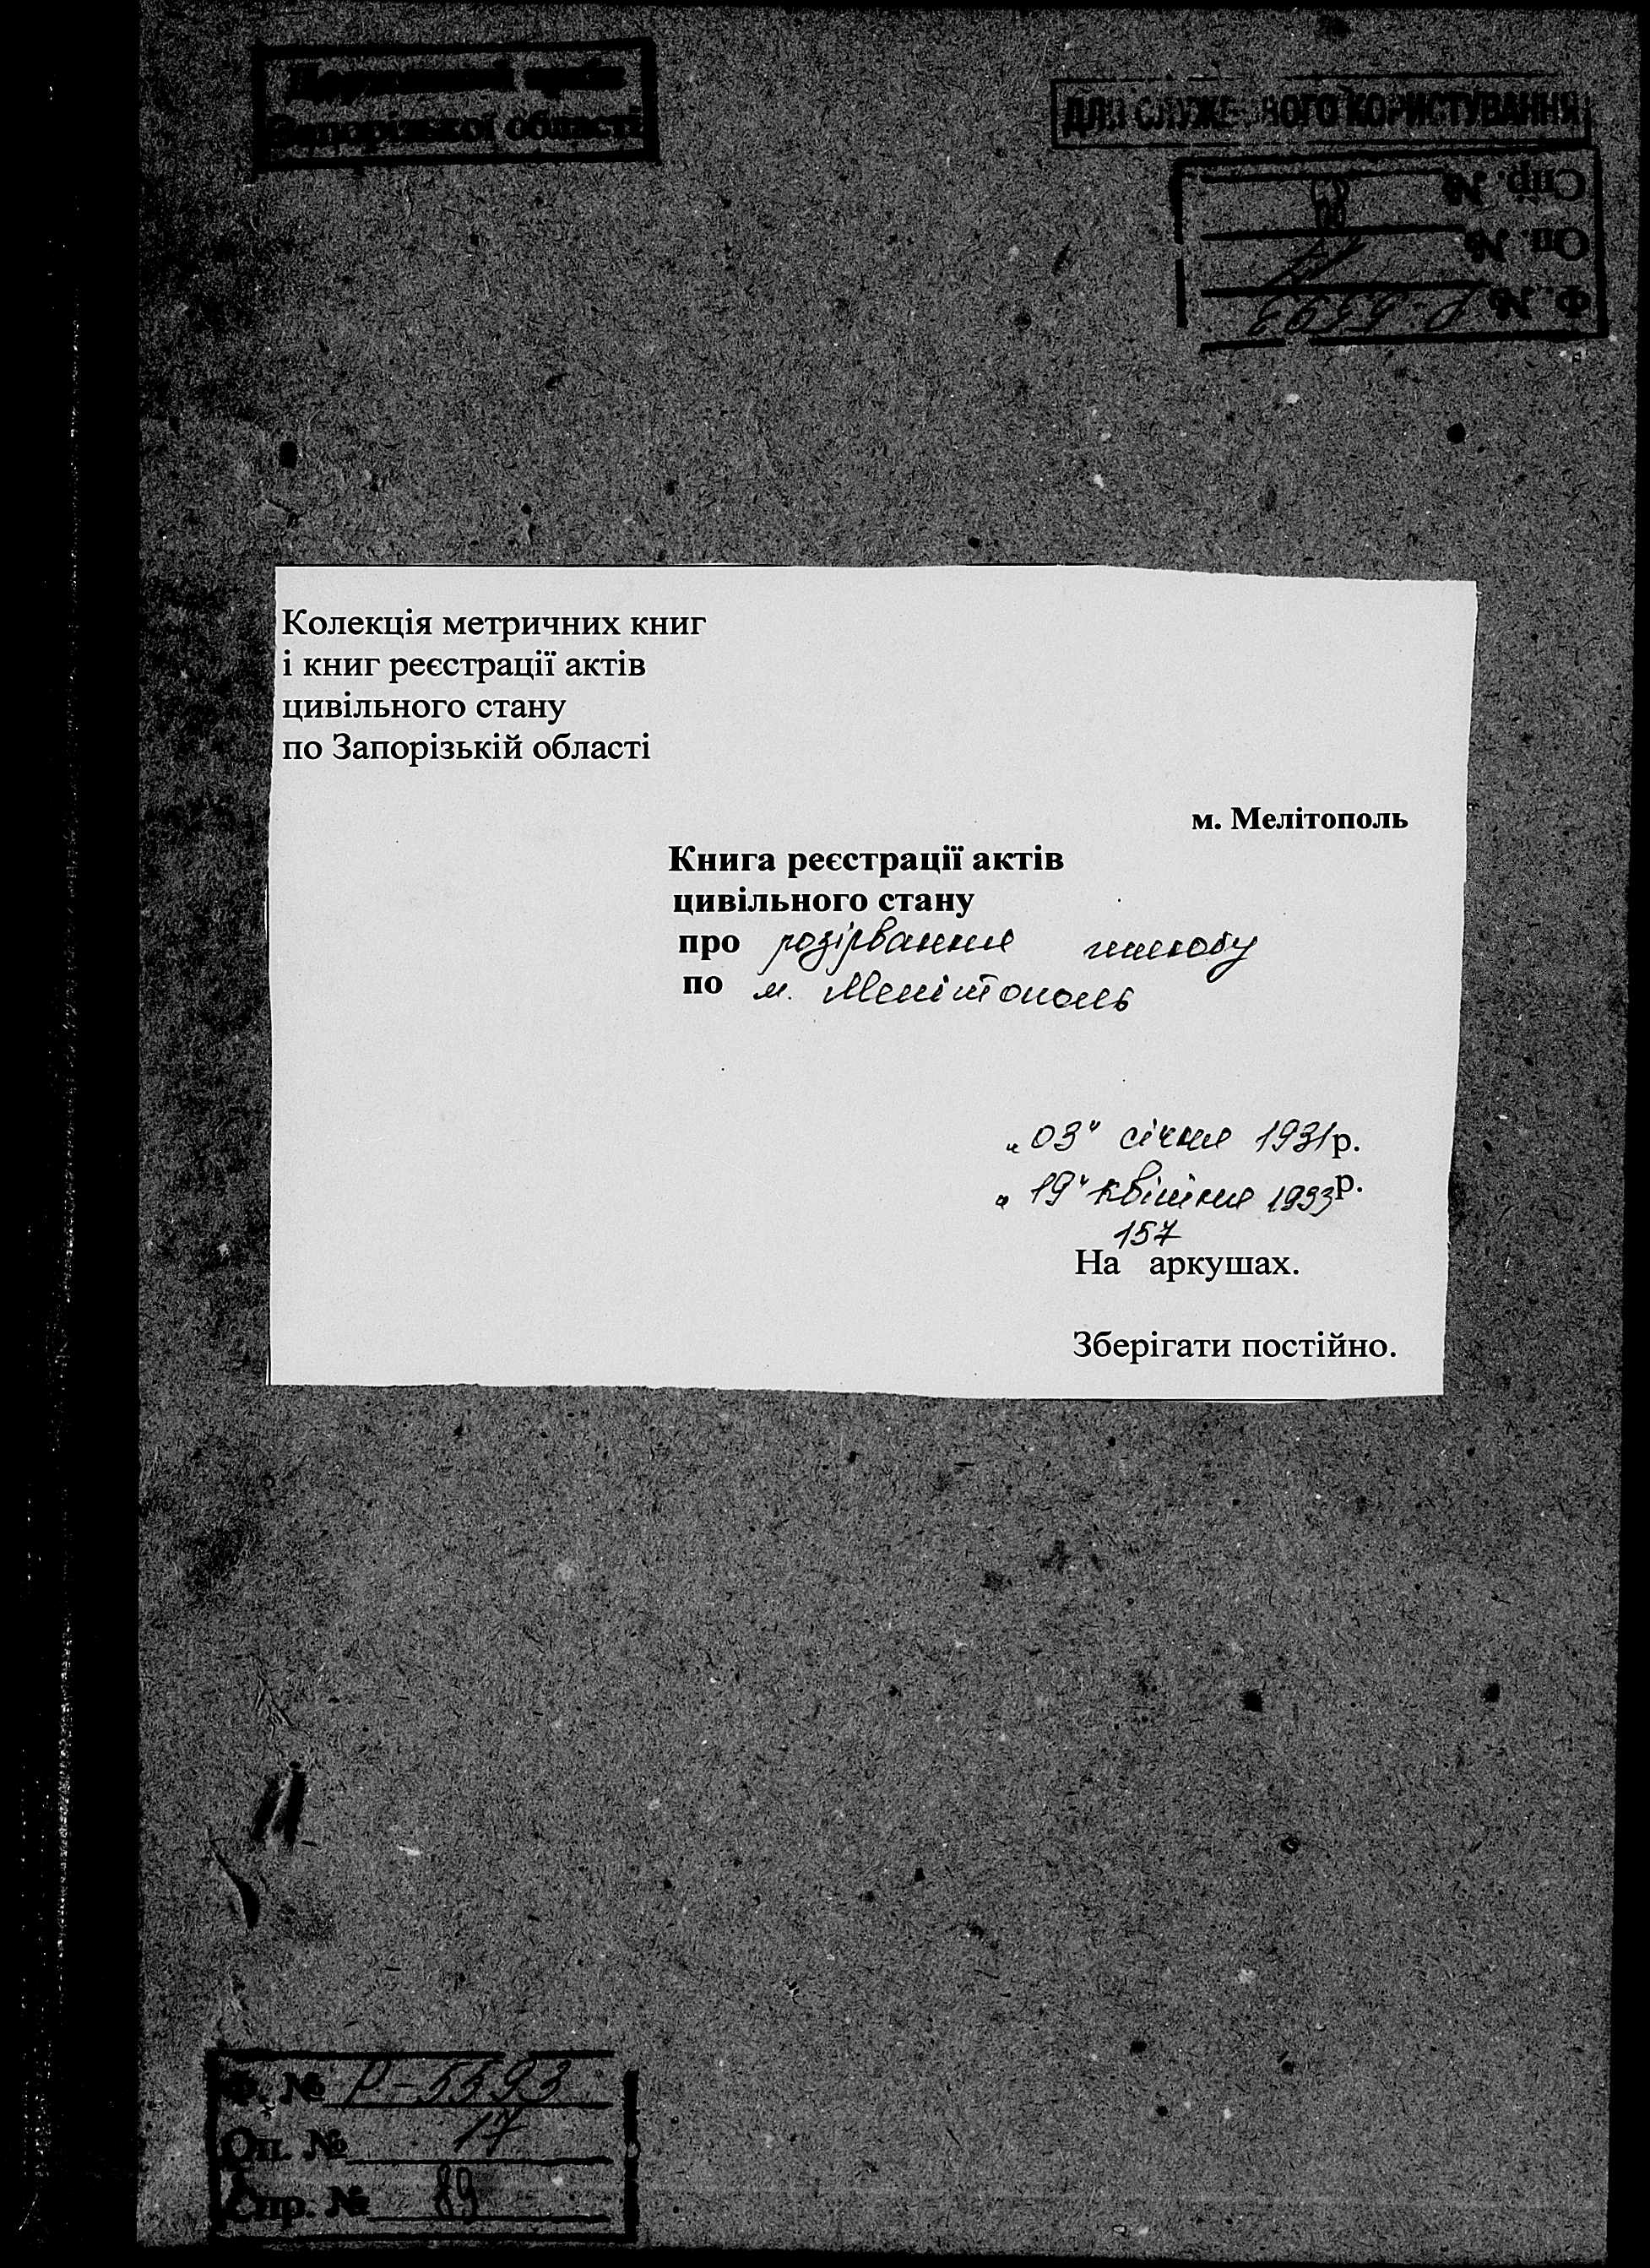 Державний архів
Запорізької області
ДЛЯ СЛУЖБОВОГО КОРИСТУВАННЯ
Спр. № 89
Оп. № 17
Ф. № Р-5593
Колекція метричних книг
і книг реєстрації актів
цивільного стану
по Запорізькій області
м. Мелітополь
Книга реєстрації актів
цивільного стану
про розірвання шлюбу
по м. Мелітополь
„03" січня 1931р.
„19" квітня 1933р.
157
На аркушах.
Зберігати постійно.
Ф. № Р-5593
Оп. № 17
Спр. № 89